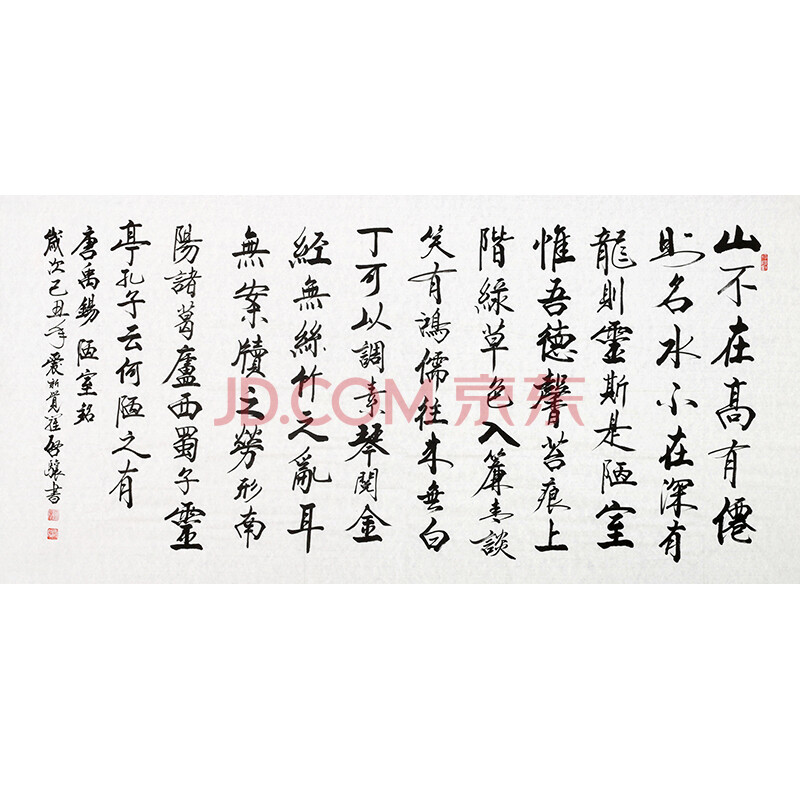 山不在高有僊
則名水不在深有
龍則靈斯是陋室
惟吾德馨苔痕上
階綠草色入簾青談
笑有鴻儒往来無白
丁可以調素琴閱金
經無絲竹之亂耳
無案牘之勞形南
陽諸葛廬西蜀子靈
亭孔子云何陋之有
唐禹錫 陋室銘
歲次己丑年 愛新覺羅啓驤書
JD.COM 京东